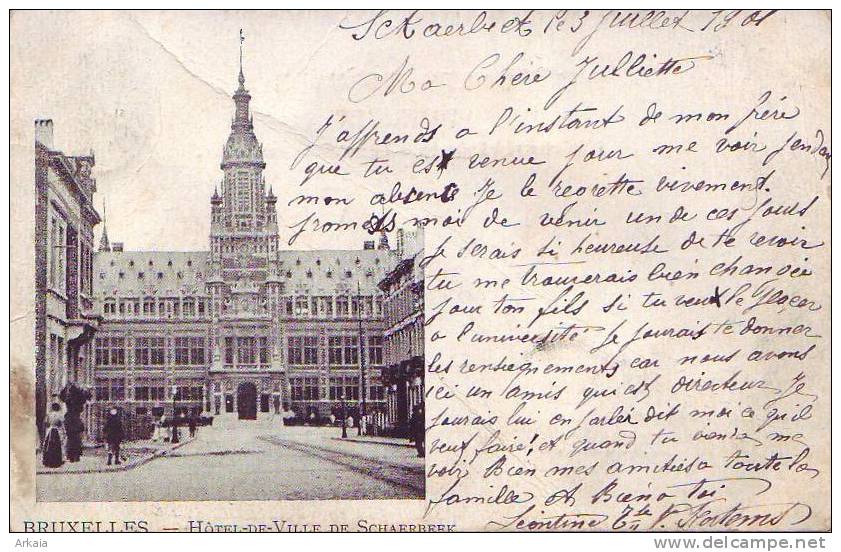 Schaerbeek le 3 Juillet 1901
Ma Chère Julliette
J'apprends a l'instant de mon frére
que tu est venue pour me voir pendant
mon absence Je le regrette vivement.
promets moi de venir un de ces jours
Je serais si heureuse de te revoir
tu me trouverais bien changée
pour ton fils si tu veux le plaçer
a l'université Je pourais te donner
les renseignements car nous avons
ici un amis qui est directeur Je
pourais lui en parler dit moi ce qu'il
veut faire, et quand tu viendra me
voir Bien mes amitiés a toute la
famille et Bien a toi
Léontine
BRUXELLES. — HÔTEL-DE-VILLE DE SCHAERBEEK
Arkaia
www.delcampe.net